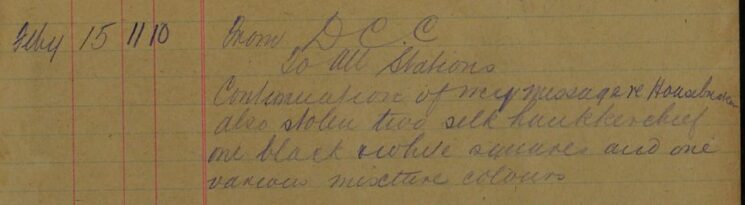 Feby 15 11 10 From D.C.C
To All Stations
Continuation of my message re Housebreaker
also stolen two silk hankkerchief
one black & white squares and one
various mixture colours